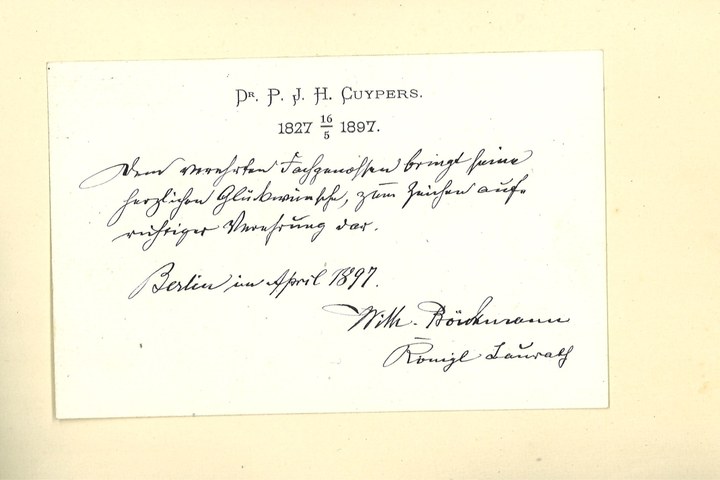 Dr. P. J. H. CUYPERS.
1827 16/5 1897.
Dem verehrten Fachgenossen bringt seine
herzlichen Glückwünsche, zum Zeichen auf-
richtiger Verehrung dar.
Berlin im April 1897.
Wilh. Böckmann
Königl Baurath